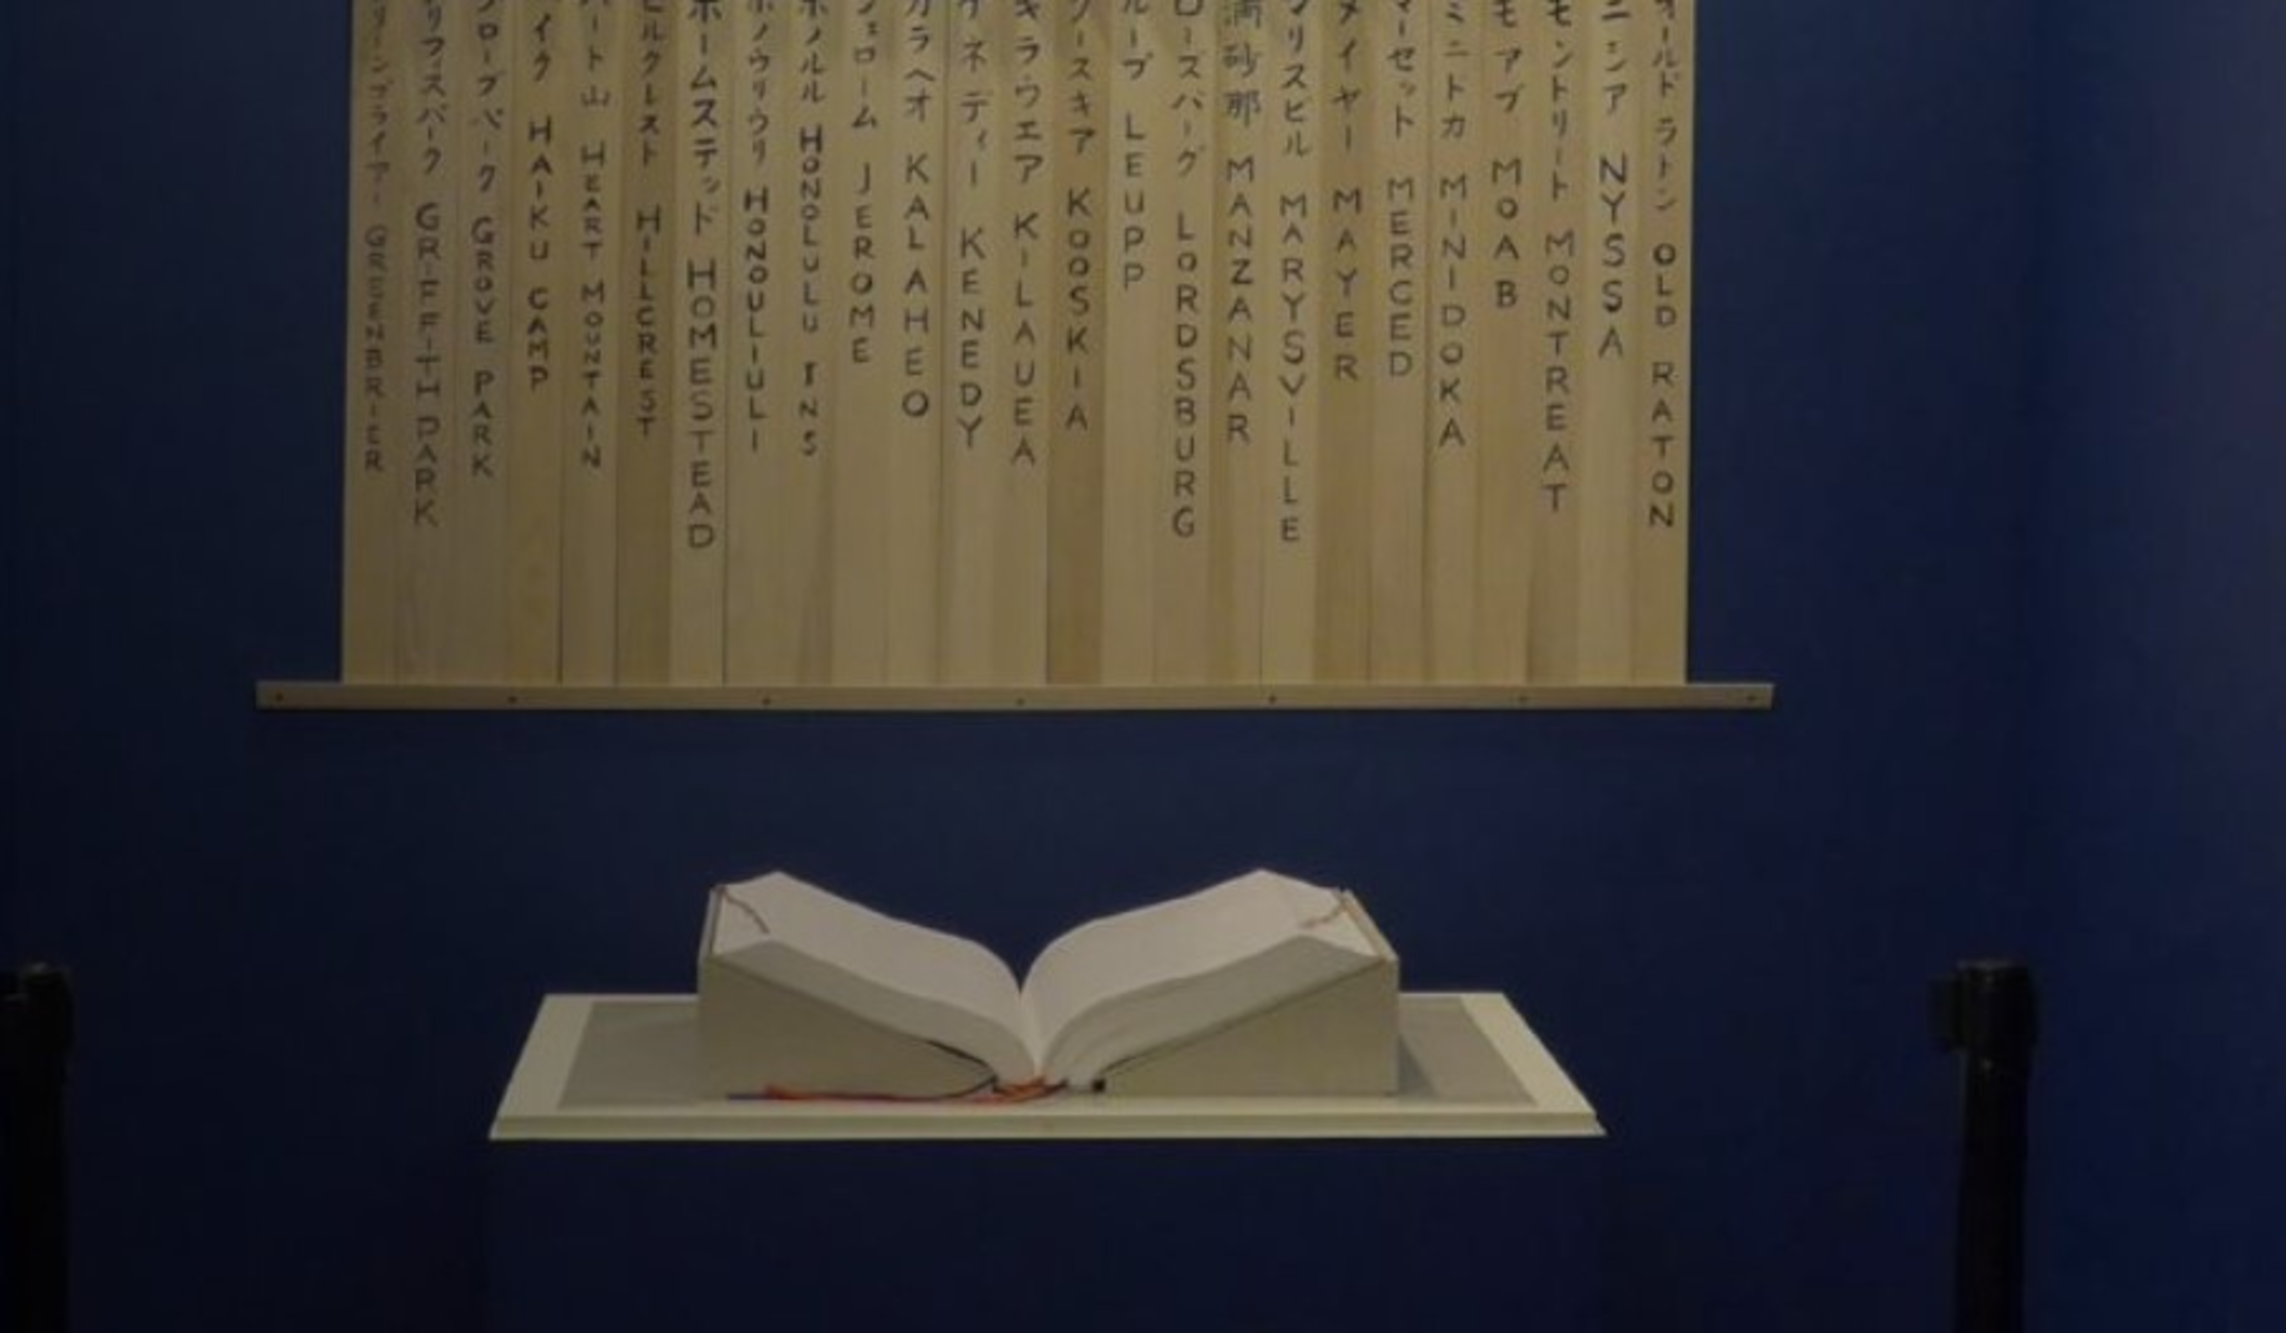 リーンブライアー GREENBRIER
リフィスパーク GRIFFITH PARK
ローブパーク GROVE PARK
イク HAIKU CAMP
ート山 HEART MOUNTAIN
ヒルクレスト HILLCREST
ホームステッド HOMESTEAD
ホノウリウリ HONOULIULI
ホノルル HONOLULU INS
ジェローム JEROME
カラヘオ KALAHEO
ケネディー KENEDY
キラウエア KILAUEA
ースキア KOOSKIA
ループ LEUPP
ローズバーグ LORDSBURG
満砂那 MANZANAR
リスビル MARYSVILLE
メイヤー MAYER
マーセット MERCED
ミニトカ MINIDOKA
モアブ MOAB
モントリート MONTREAT
ニッア NYSSA
オールド ラトン OLD RATON